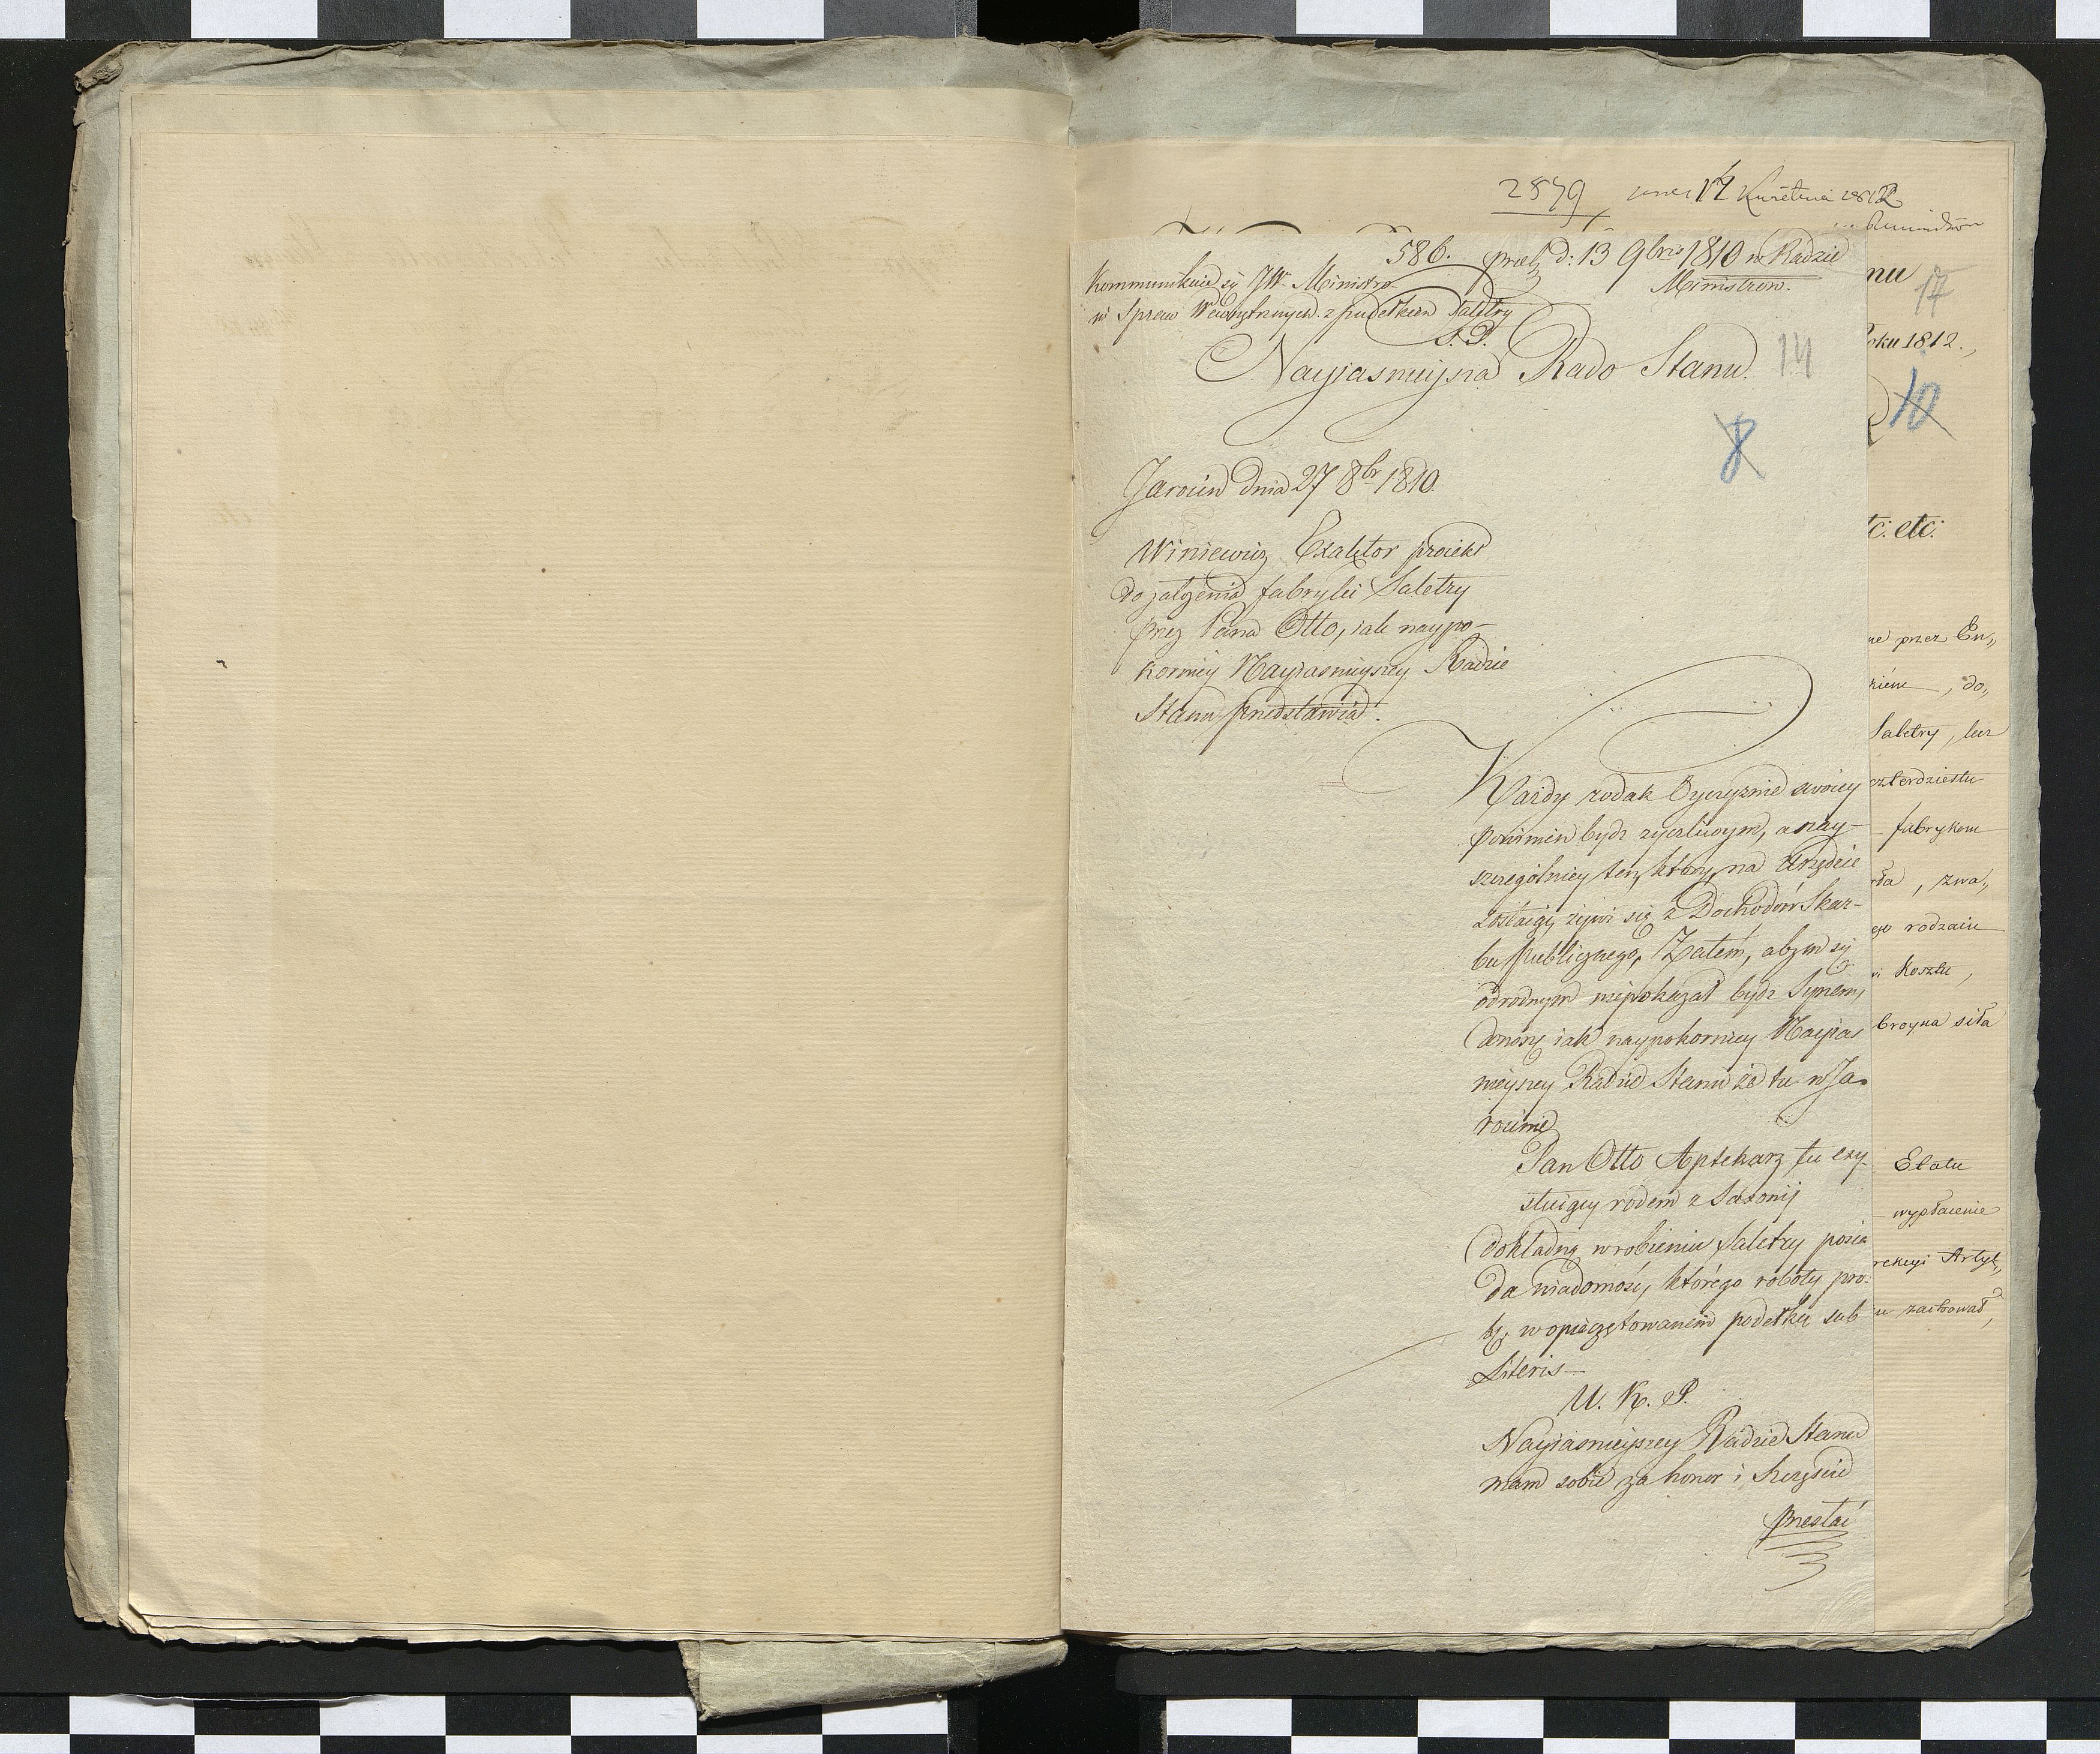 2879
17 Kwietnia 1812
586. prod: d: 13 9bris 1810 w Radzie
Ministrow.
Kommunikuie się JW. Ministro-
w Spraw Wewnętrznych z pudełkiem Saletry
S. P.
Nayiasnieysza Rado Stanu.
14
8
Jarocin dnia 27 8br 1810
Winiewicz Exaktor proiekt
do założenia fabryki Saletry
przez Pana Otto, iak naypo-
korniey Nayiasnieyszey Radzie
Stanu przedstawia.
Kazdy rodak Oyczyznie swoiey
powinien bydz zyczliwym, a nay-
szczególniey ten, który na Urzędzie
zostaiąc, żywi się z Dochodów Skar-
bu Publicznego, Zatém, abym się
odrodnym niepokazał bydz Synem,
donoszę iak naypokorniey Nayias
nieyszey Radzie Stanu że tu w Ja-
rocinie
Pan Otto Aptekarz tu exy-
stuiący rodem z Saxonij
dokładną w robieniu Saletry posia
da wiadomość, którego roboty pro-
bę w opieczętowanem pudełku sub
Literis—
U. K. P.
Nayiasnieyszey Radzie Stanu
mam sobie za honor i Szczęście
przesłać
nu
17
oku 1812.,
10
tc: etc:
ne przez En,,
, do,,
Saletry, lecz
czterdziestu
fabrykom
, zwa,,
ego rodzaiu
Kosztu,
broyna siła
Etatu
wypłacenie
rekcyi Artyl,,
zachował,